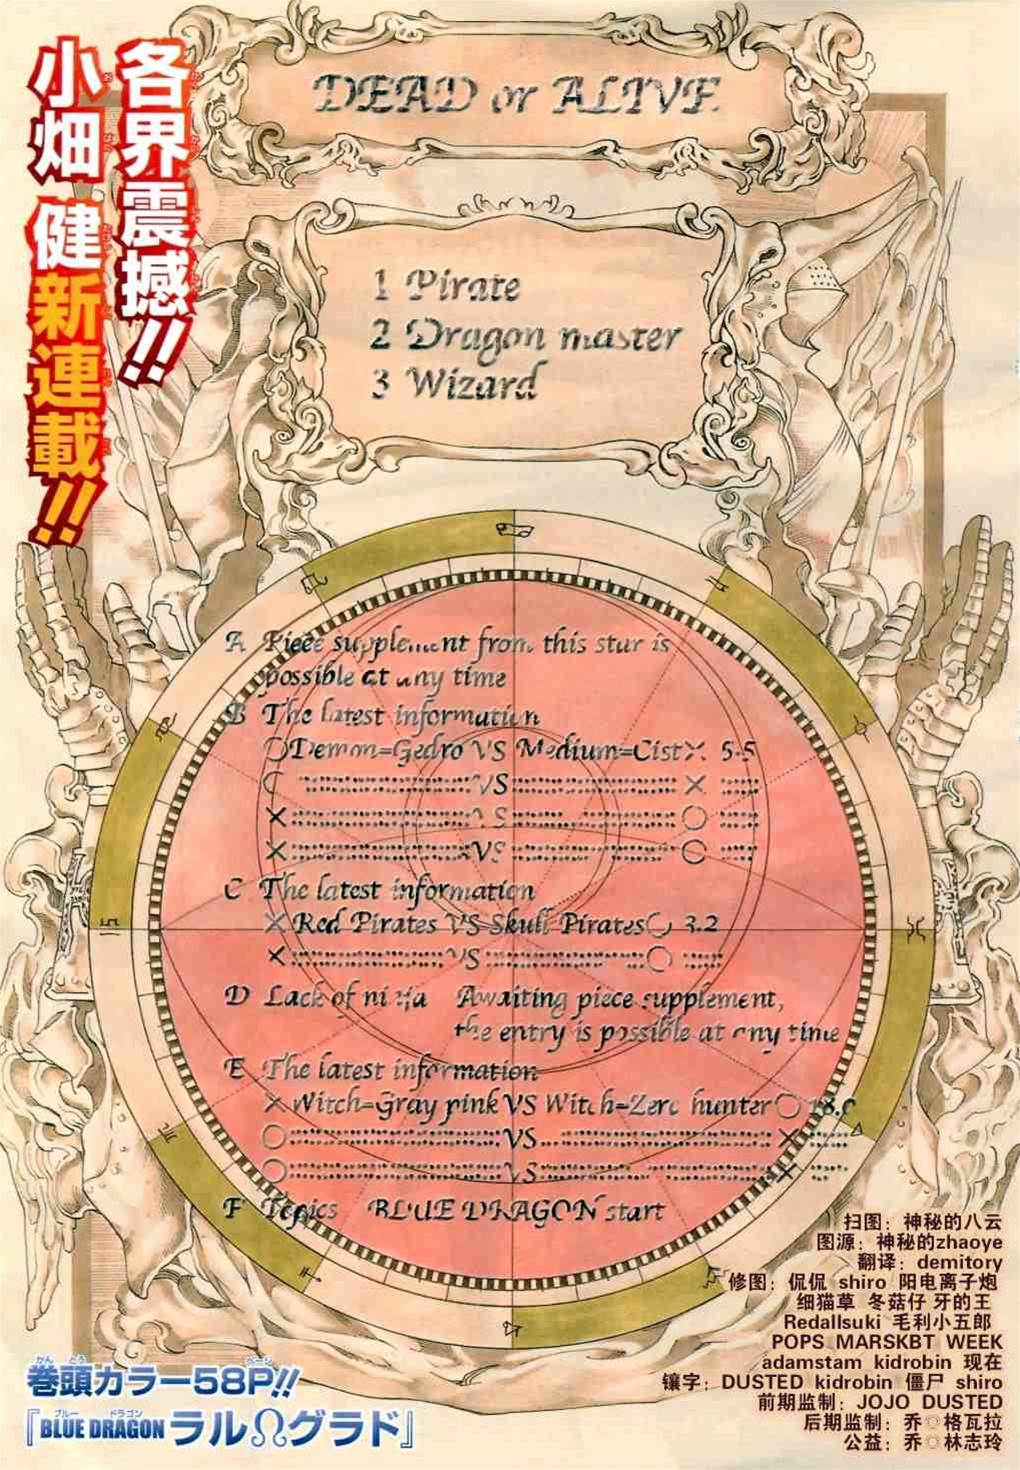 各界震撼!!
小畑 健新連載!!
DEAD or ALIVE
1 Pirate
2 Dragon master
3 Wizard
A Piece supplement from this star is
possible at any time
B The latest information
○Demon=Gedro VS Medium=Cist× 5.5
VS ×
× VS ○
× VS ○
C The latest information
×Red Pirates VS Skull Pirates○ 3.2
× VS ○
D Lack of ninja Awaiting piece supplement,
the entry is possible at any time
E The latest information
×Witch=Gray pink VS Witch=Zero hunter○
○ VS ×
○ VS ×
F Topics BLUE DRAGON start
扫图：神秘的八云
图源：神秘的zhaoye
翻译：demitory
修图：侃侃 shiro 阳电离子炮
细猫草 冬菇仔 牙的王
Redallsuki 毛利小五郎
POPS MARSKBT WEEK
adamstam kidrobin 现在
镶字：DUSTED kidrobin 僵尸 shiro
前期监制：JOJO DUSTED
后期监制：乔○格瓦拉
公益：乔○林志玲
巻頭カラー58P!!
『BLUE DRAGON ラルΩグラド』